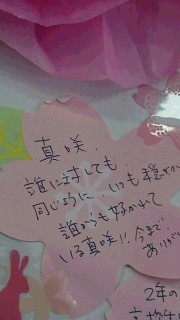 真咲、
誰に対しても
同じように、いつも穏やか
誰からも好かれて
いる真咲!! 今まで
ありが
2年の